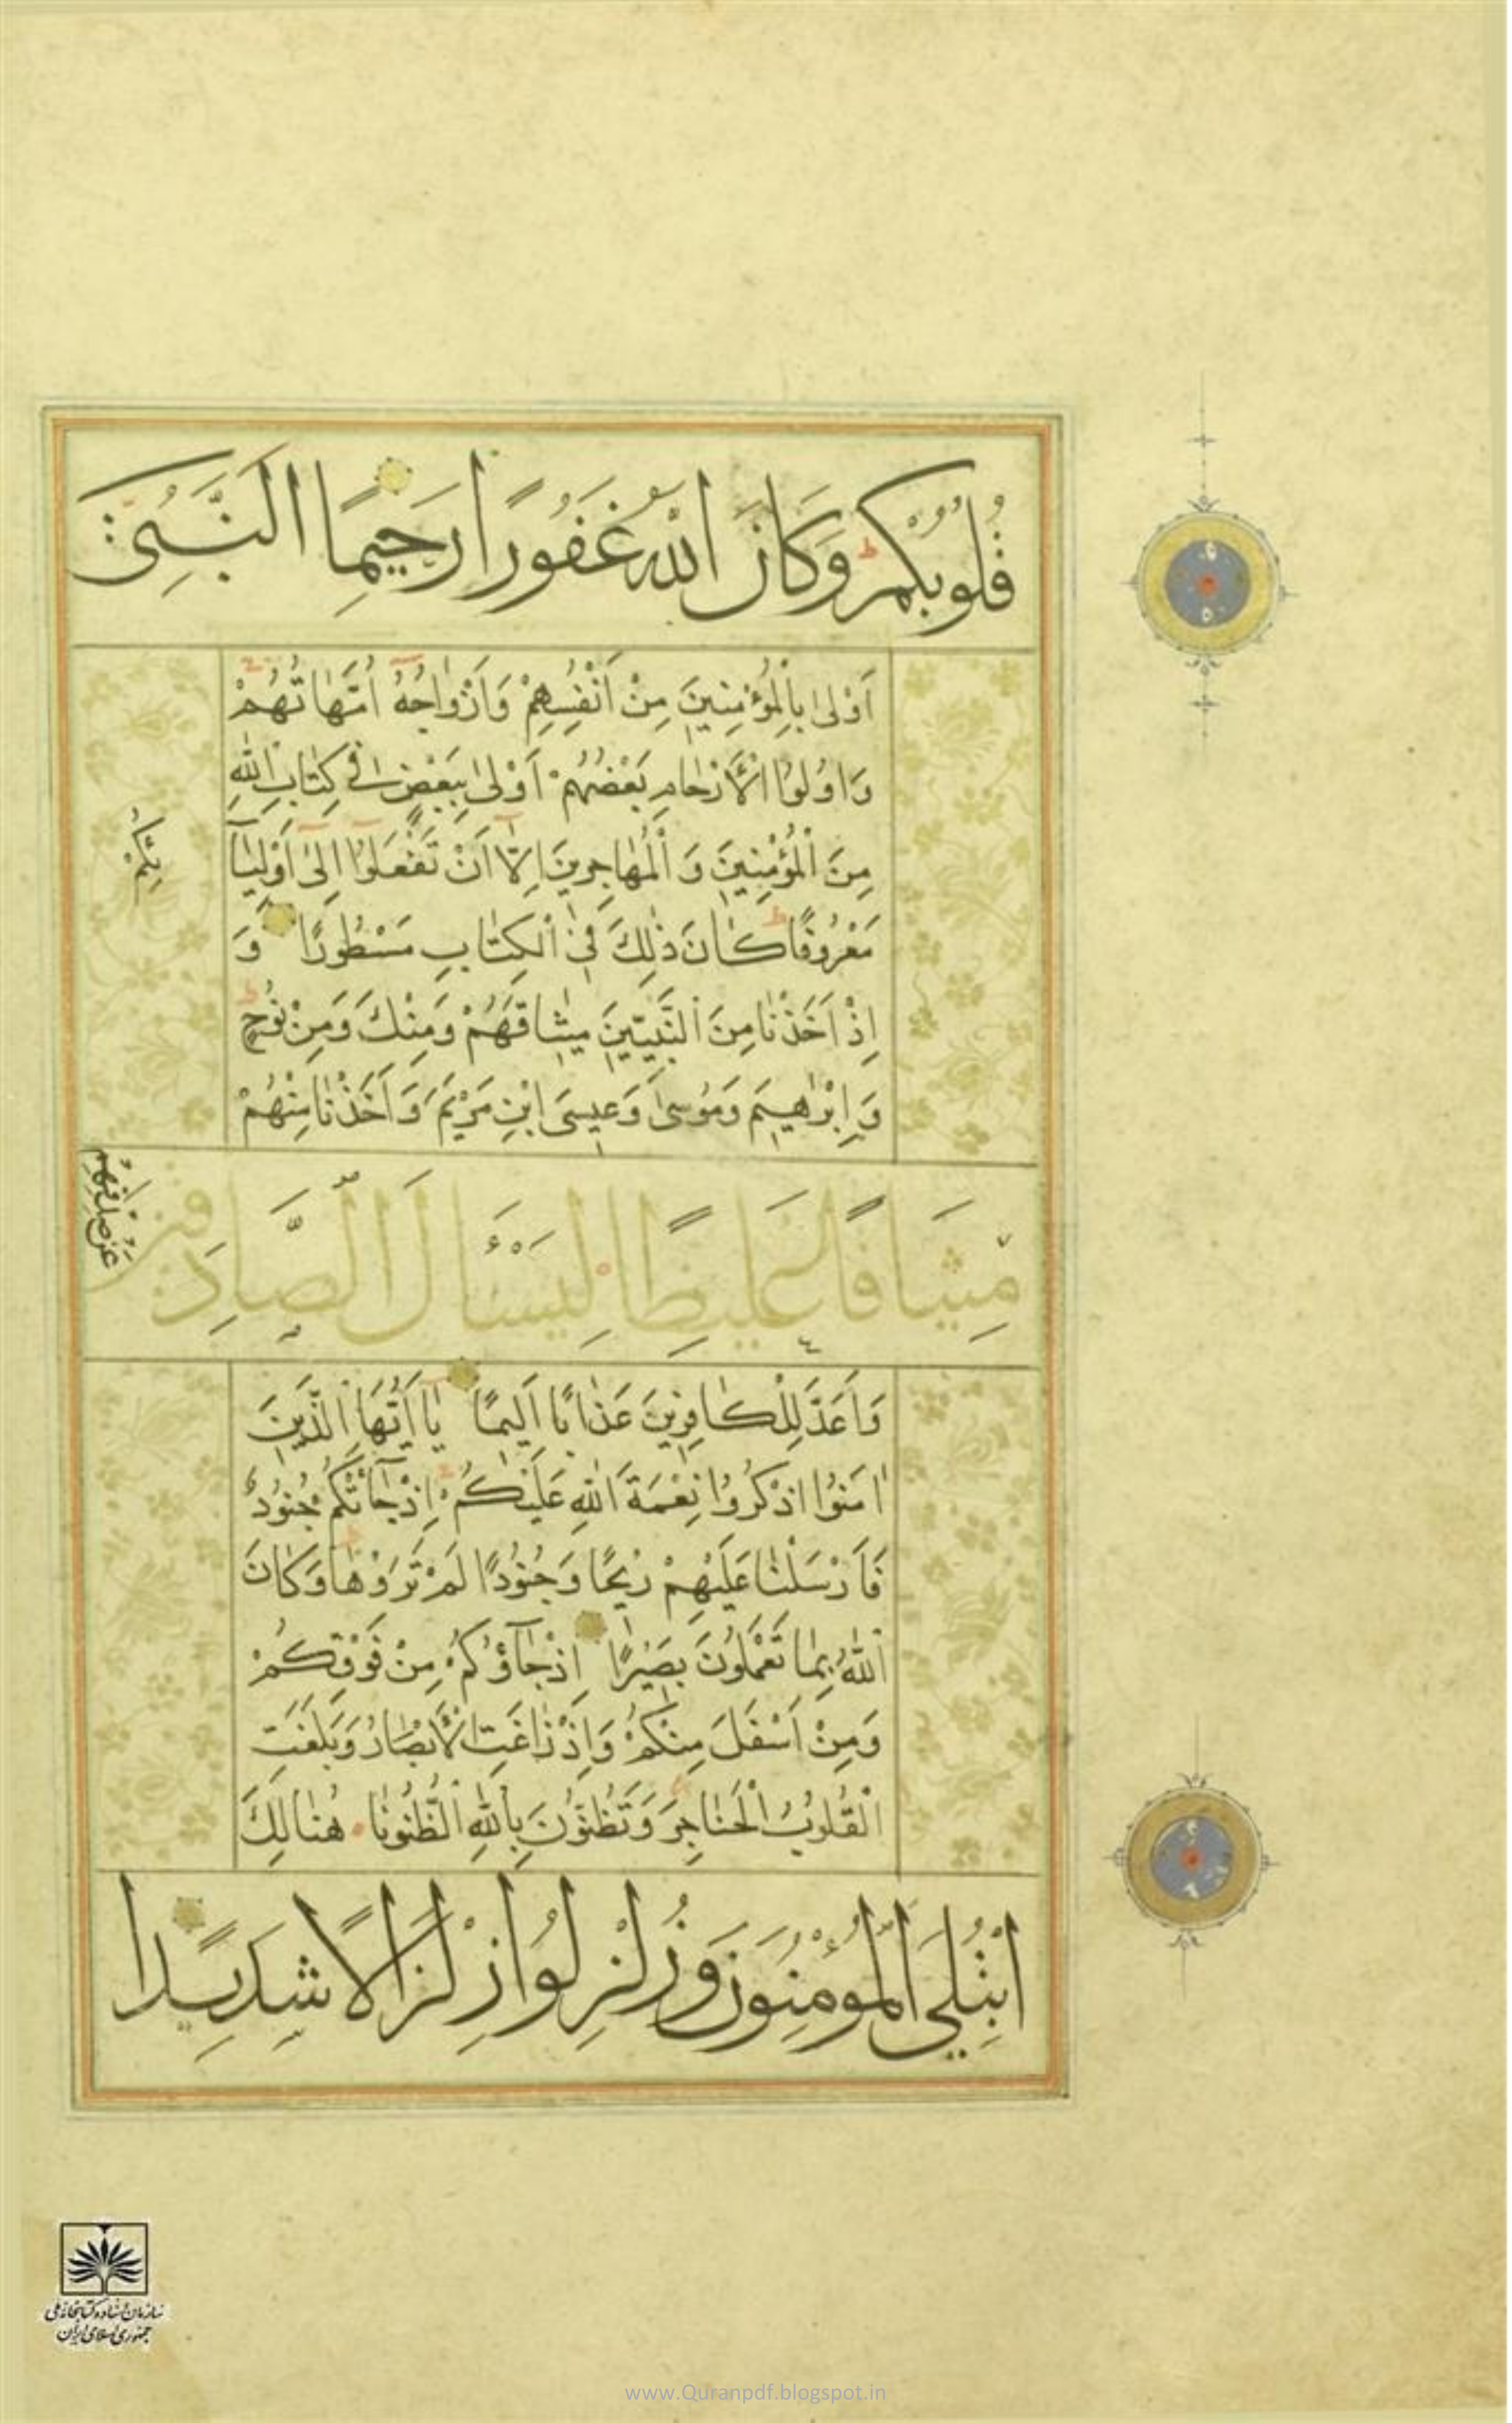 قُلُوبُكُمْ وَكَانَ اللّٰهُ غَفُورًا رَحِيمًا اَلنَّبِىُّ
اَوْلىٰ بِالْمُؤْمِنِينَ مِنْ اَنْفُسِهِمْ وَاَزْوٰاجُهُ اُمَّهٰاتُهُمْ
وَاُولُوا الْاَرْحٰامِ بَعْضُهُمْ اَوْلىٰ بِبَعْضٍ فِى كِتٰابِ اللّٰهِ
مِنَ الْمُؤْمِنِينَ وَ الْمُهٰاجِرِينَ اِلّٰا اَنْ تَفْعَلُوا اِلىٰ اَوْلِيٰا
ئِكُمْ
مَعْرُوفًا كٰانَ ذٰلِكَ فِى الْكِتٰابِ مَسْطُورًا وَ
اِذْ اَخَذْنٰا مِنَ النَّبِيّٖنَ مِيثٰاقَهُمْ وَمِنْكَ وَمِنْ نُوحٍ
وَ اِبْرٰاهِيمَ وَمُوسىٰ وَعِيسَى ابْنِ مَرْيَمَ وَ اَخَذْنٰا مِنْهُمْ
مِيثَاقًا غَلِيظًا لِيَسْئَالَ الصَّادِقِينَ
عَنْ صِدْقِهِمْ
وَ اَعَدَّ لِلْكٰافِرِينَ عَذٰابًا اَلِيمًا يٰا اَيُّهَا الَّذِينَ
اٰمَنُوا اذْكُرُوا نِعْمَةَ اللّٰهِ عَلَيْكُمْ اِذْ جٰاۤئَتْكُمْ جُنُودٌ
فَاَرْسَلْنٰا عَلَيْهِمْ رِيحًا وَجُنُودًا لَمْ تَرَوْهٰا وَكٰانَ
اللّٰهُ بِمٰا تَعْمَلُونَ بَصِيرًا اِذْ جٰاۤؤُكُمْ مِنْ فَوْقِكُمْ
وَمِنْ اَسْفَلَ مِنْكُمْ وَاِذْ زٰاغَتِ الْاَبْصٰارُ وَبَلَغَتِ
الْقُلُوبُ الْحَنٰاجِرَ وَتَظُنُّونَ بِاللّٰهِ الظُّنُونٰا هُنٰالِكَ
ابْتُلِيَ الْمُؤْمِنُونَ وَزُلْزِلُوا زِلْزَالًا شَدِيدًا
سازمان اسناد و کتابخانه ملی
جمهوری اسلامی ایران
www.Quranpdf.blogspot.in